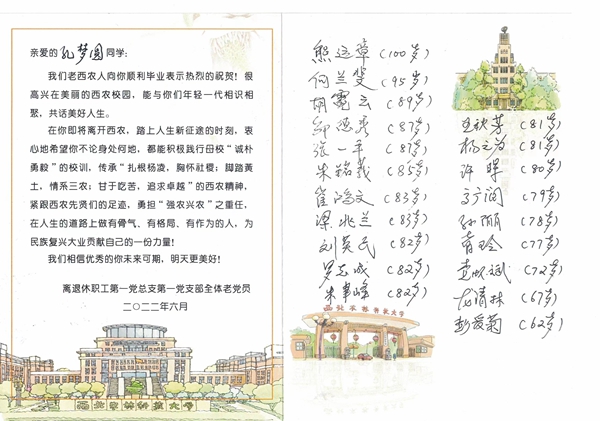 亲爱的孔梦圆同学：
我们老西农人向你顺利毕业表示热烈的祝贺！很
高兴在美丽的西农校园，能与你们年轻一代相识相
聚，共话美好人生。
在你即将离开西农，踏上人生新征途的时刻，衷
心地希望你不论身处何地，都能积极践行母校“诚朴
勇毅”的校训，传承“扎根杨凌，胸怀社稷；脚踏黄
土，情系三农；甘于吃苦，追求卓越”的西农精神，
紧跟西农先贤们的足迹，勇担“强农兴农”之重任，
在人生的道路上做有骨气、有格局、有作为的人，为
民族复兴大业贡献自己的一份力量！
我们相信优秀的你未来可期，明天更美好！
离退休职工第一党总支第一党支部全体老党员
二〇二二年六月
西北农林科技大学
熊运章（100岁）
何兰斐（95岁）
胡霓云（89岁）
（87岁）
张一平（87岁）
朱铭莪（86岁）
翟鸿文（83岁）
梁兆兰（83岁）
刘英民（82岁）
罗志成（82岁）
朱事峰（82岁）
西北农林科技大学
（81岁）
（81岁）
许晖（80岁）
（79岁）
孙丽（78岁）
（77岁）
（72岁）
龙清林（67岁）
彭爱菊（62岁）